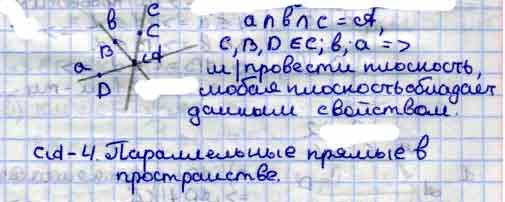 c
b
C
B
A
a
D
a ∩ b ∩ c = A,
C, B, D ∈ c; b, a =>
м/провести плоскость,
любая плоскость обладает
данным свойством.
cd-4. Параллельные прямые в
пространстве.